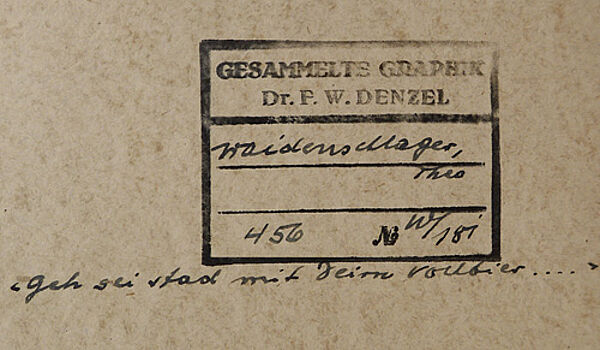 GESAMMELTE GRAPHIK
Dr. F. W. DENZEL
Waidenschlager,
Theo
456 № W/181
"Geh sei stad mit Deim Vollbier....."